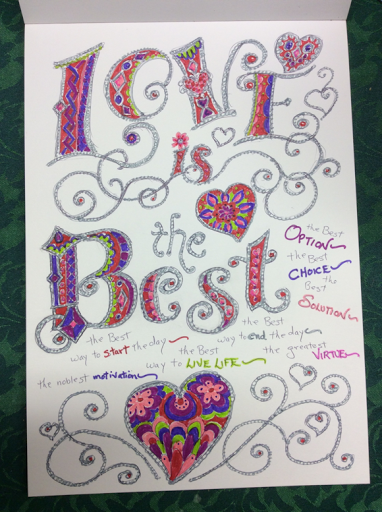 LOVE
is
the
Best
the Best
OPTION
the Best
CHOICE
the
Best
SOLUTION
the Best
way to START the day
the Best
way to end the day
the Best
way to LIVE LIFE
the greatest
VIRTUE
the noblest motivation